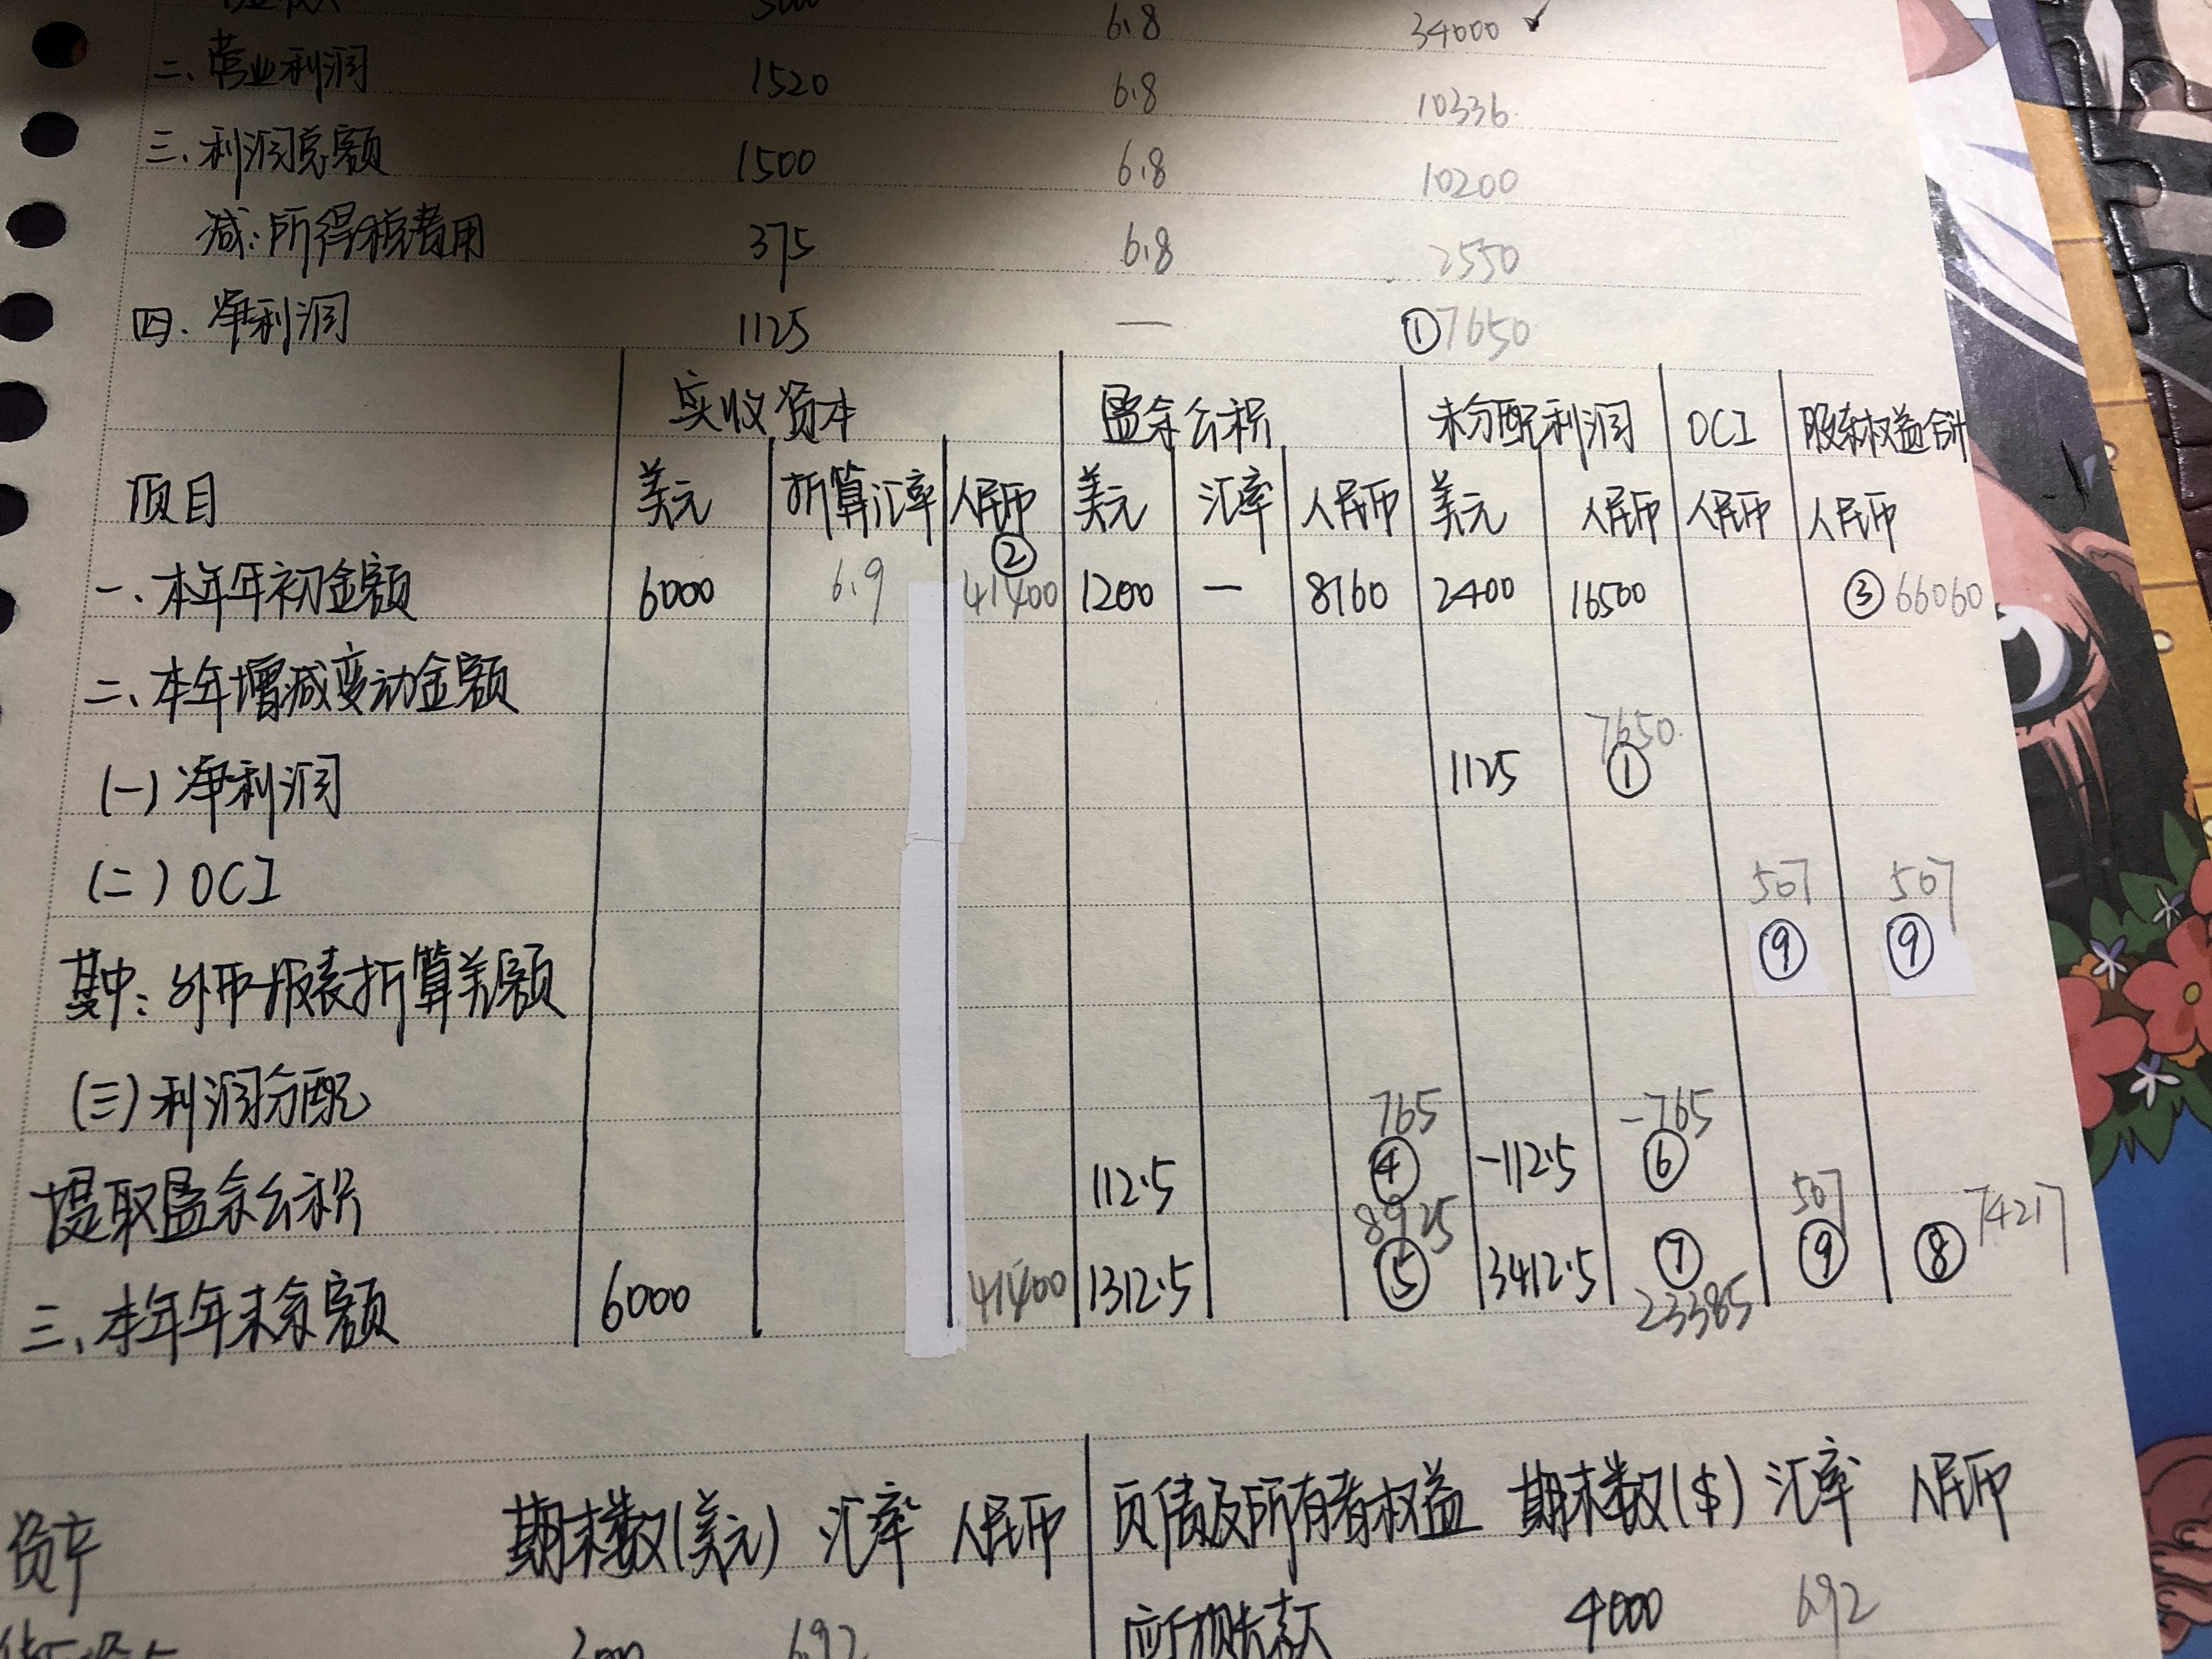 6.8 34000 ✓
二、营业利润 1520 6.8 10336
三、利润总额 1500 6.8 10200
减:所得税费用 375 6.8 2550
四、净利润 1125 — ①7650
实收资本 盈余公积 未分配利润 OCI 股东权益合计
项目 美元 折算汇率 人民币 美元 汇率 人民币 美元 人民币 人民币 人民币
②
一、本年年初金额 6000 6.9 41400 1200 — 8160 2400 16500 ③66060
二、本年增减变动金额
7650
(一)净利润 1125 ①
(二)OCI 507 507
其中:外币报表折算差额 ⑨ ⑨
(三)利润分配 765 -765
提取盈余公积 112.5 ④ -112.5 ⑥
8925 507 74217
三、本年年末余额 6000 41400 1312.5 ⑤ 3412.5 ⑦ ⑨ ⑧
23385
资产 期末数(美元) 汇率 人民币 负债及所有者权益 期末数($) 汇率 人民币
6.92 应付账款 4000 6.92